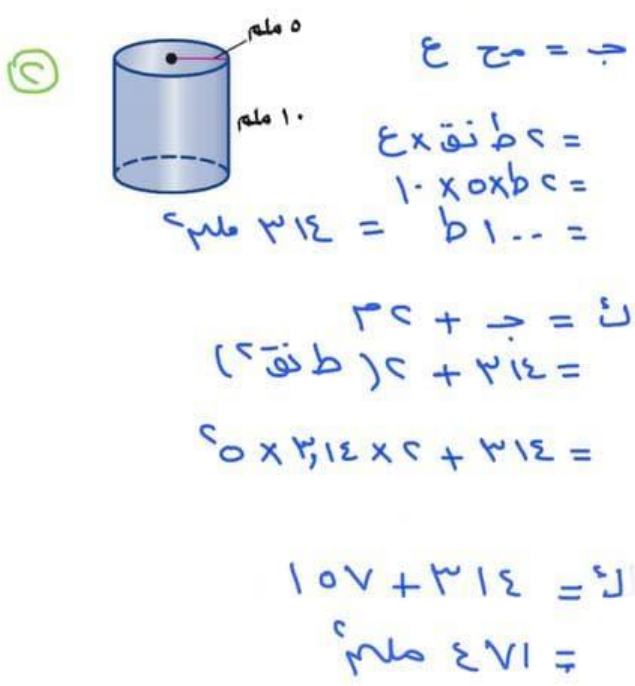 ٢
٥ ملم
١٠ ملم
جـ = مح ع
= ٢ ط نق × ع
= ٢ ط × ٥ × ١٠
= ١٠٠ ط = ٣١٤ ملم٢
ك = جـ + ٢م
= ٣١٤ + ٢( ط نق٢)
= ٣١٤ + ٢ × ٣,١٤ × ٥٢
ك = ٣١٤ + ١٥٧
= ٤٧١ ملم٢